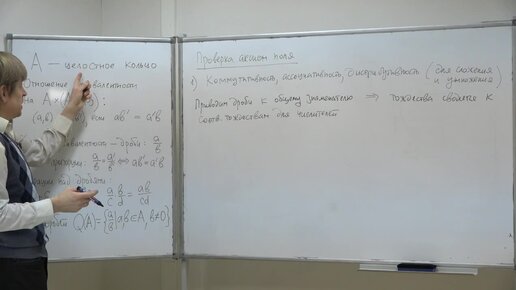 A – целостное кольцо
Отношение
на A×
(a,b) если ab' = a'b
дроби: a/b
a/b = a'/b' ⇔ ab' = a'b
над дробями
a/c b/d = ab/cd
Q(A) = {a/b | a,b ∈ A, b≠0}
Проверка аксиом поля
Коммутативность, ассоциативность, дистрибутивность (для сложения и умножения)
Приводим дроби к общему знаменателю ⇒ тождества сводятся к
соотв. тождествам для числителей